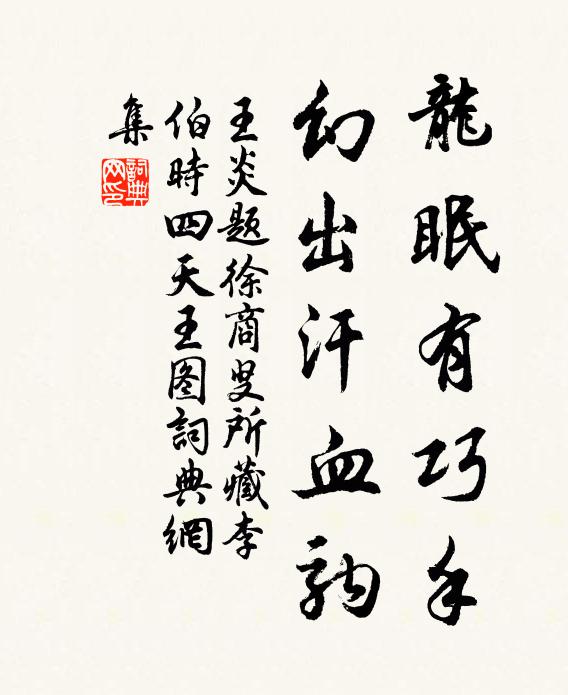 龍眠有巧手
幻出汗血駒
王炎题徐商叟所藏李
伯時四天王图詞典網
集
詞典網印